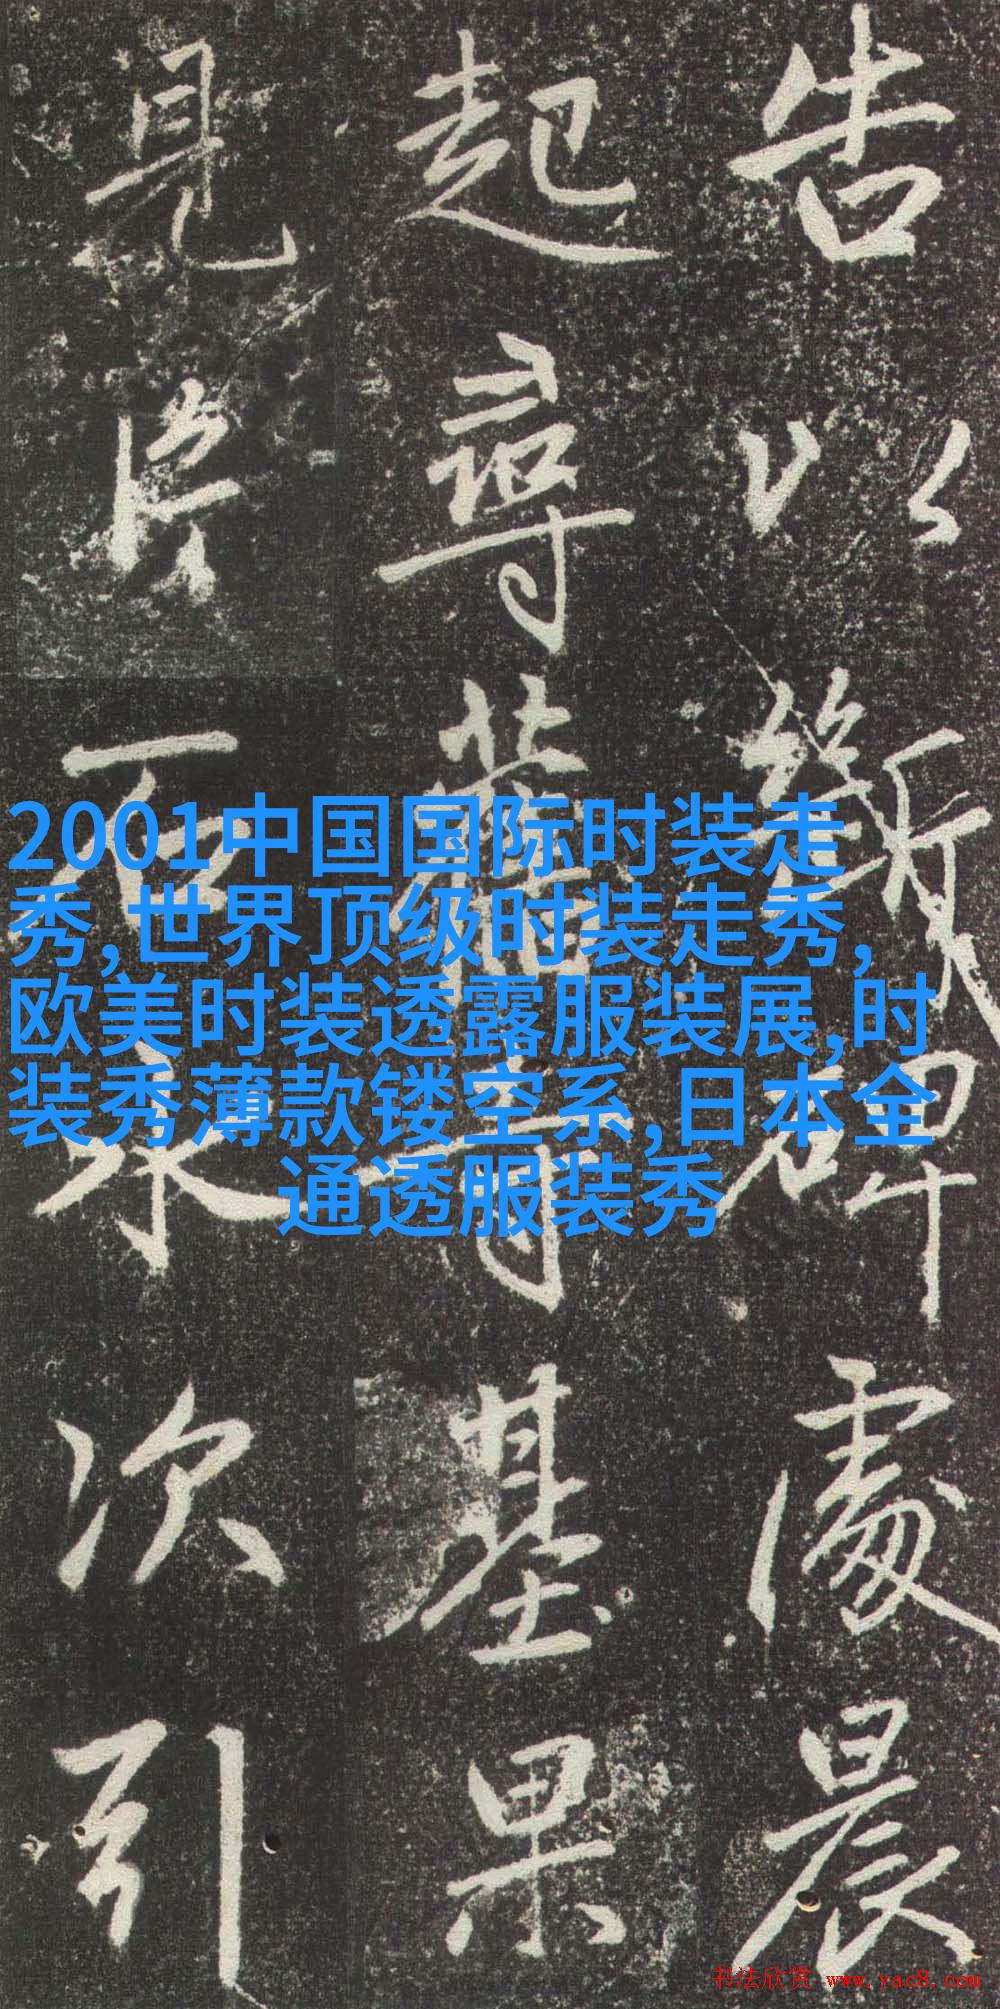 告以碑處晨
起尋舊寺基果
見片石次引
2001中国国际时装走
秀,世界顶级时装走秀,
欧美时装透露服装展,时
装秀薄款镂空系,日本全
通透服装秀
书法欣赏 www.yac8.com